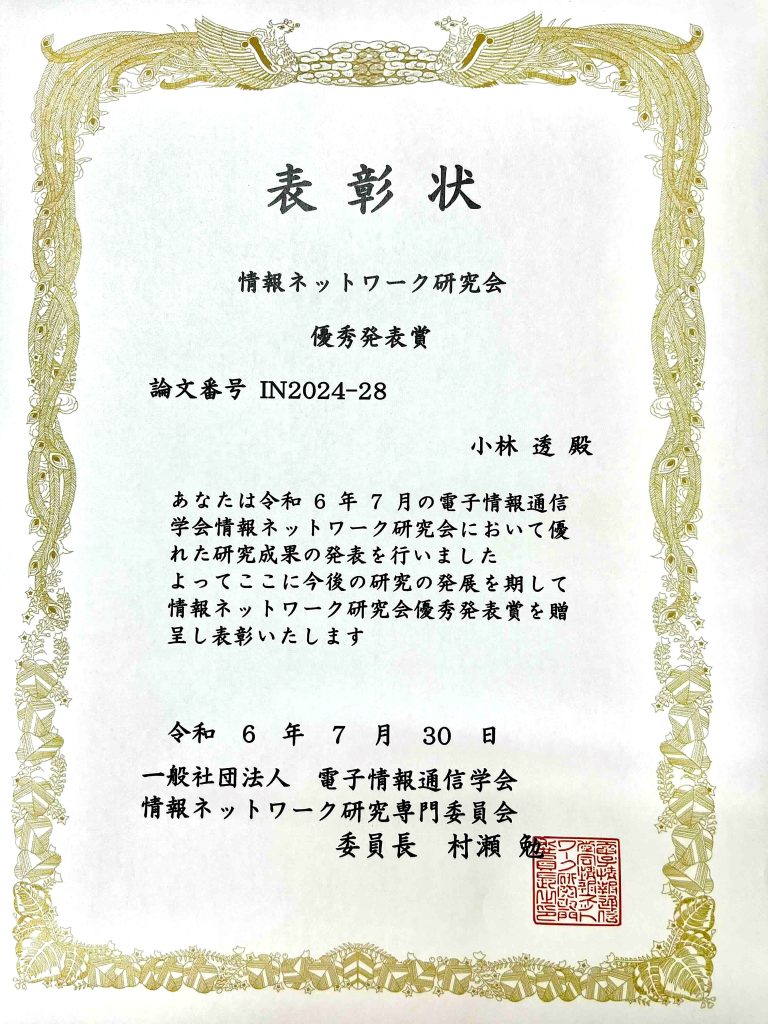 表彰状
情報ネットワーク研究会
優秀発表賞
論文番号 IN2024-28
小林 透 殿
あなたは令和 6 年 7 月の電子情報通信
学会情報ネットワーク研究会において優
れた研究成果の発表を行いました
よってここに今後の研究の発展を期して
情報ネットワーク研究会優秀発表賞を贈
呈し表彰いたします
令和 6 年 7 月 30 日
一般社団法人 電子情報通信学会
情報ネットワーク研究専門委員会
委員長 村瀬 勉